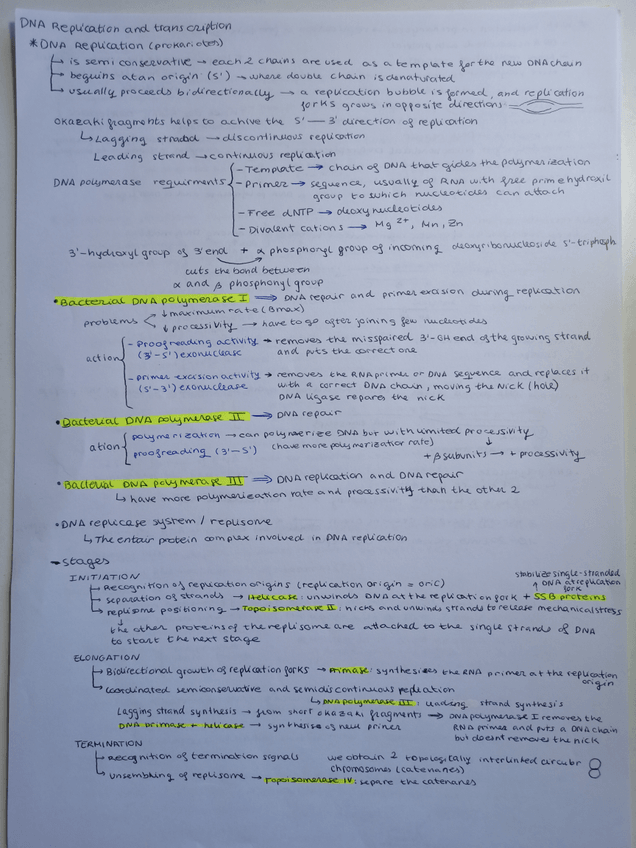 DNA Replication and transcription
*DNA Replication (prokariotes)
is semi conservative → each 2 chains are used as a template for the new DNA chain
beguins at an origin (5') → where double chain is denaturated
usually proceeds bidirectionally → a replication bubble is formed, and replication
forks grows in opposite directions
Okazaki fragments helps to achive the 5' — 3' direction of replication
Lagging strand → discontinuous replication
Leading strand → continuous replication
DNA polymerase requirments
- Template → chain of DNA that gides the polymerization
- Primer → sequence, usually of RNA with free prime hydroxil
group to which nucleotides can attach
- Free dNTP → deoxynucleotides
- Divalent cations → Mg 2+, Mn, Zn
3'-hydroxyl group of 3' end + α phosphoryl group of incoming deoxyribonucleoside 5'-triphosph
cuts the bond between
α and β phosphoryl group
• Bacterial DNA polymerase I ⟹ DNA repair and primer excision during replication
problems
↓ maximum rate (Bmax)
↓ processivity → have to go after joining few nucleotides
action
- Proofreading activity → removes the misspaired 3'-OH end of the growing strand
(3'-5') exonuclease and puts the correct one
- Primer excision activity → removes the RNA primer or DNA sequence and replaces it
(5'-3') exonuclease with a correct DNA chain, moving the nick (hole)
DNA ligase repares the nick
• Bacterial DNA polymerase II ⟹ DNA repair
ation
polymerization → can polymerize DNA but with limited processivity
proofreading (3'-5') (have more polymerization rate)
+ β subunits → + processivity
• Bacterial DNA polymerase III ⟹ DNA replication and DNA repair
have more polymerization rate and processivity than the other 2
• DNA replicase system / replisome
The entair protein complex involved in DNA replication
→ stages
INITIATION
stabilize single-stranded
DNA at replication
fork
Recognition of replication origins (replication origin = oriC)
separation of strands → Helicase: unwinds DNA at the replication fork + SSB proteins
replisome positioning → Topoisomerase II: nicks and unwinds strands to release mechanical stress
the other proteins of the replisome are attached to the single strands of DNA
to start the next stage
ELONGATION
Bidirectional growth of replication forks → Primase: synthesizes the RNA primer at the replication
origin
coordinated semiconservative and semidiscontinuous replication
DNA polymerase III: leading strand synthesis
Lagging strand synthesis → from short okazaki fragments → DNA polymerase I removes the
DNA primase + helicase → synthesise of new primer RNA primer and puts a DNA chain
but doesnt removes the nick
TERMINATION
recognition of termination signals we obtain 2 topologically interlinked circular
chromosomes (catenanes)
unsembling of replisome → Topoisomerase IV: separe the catenanes